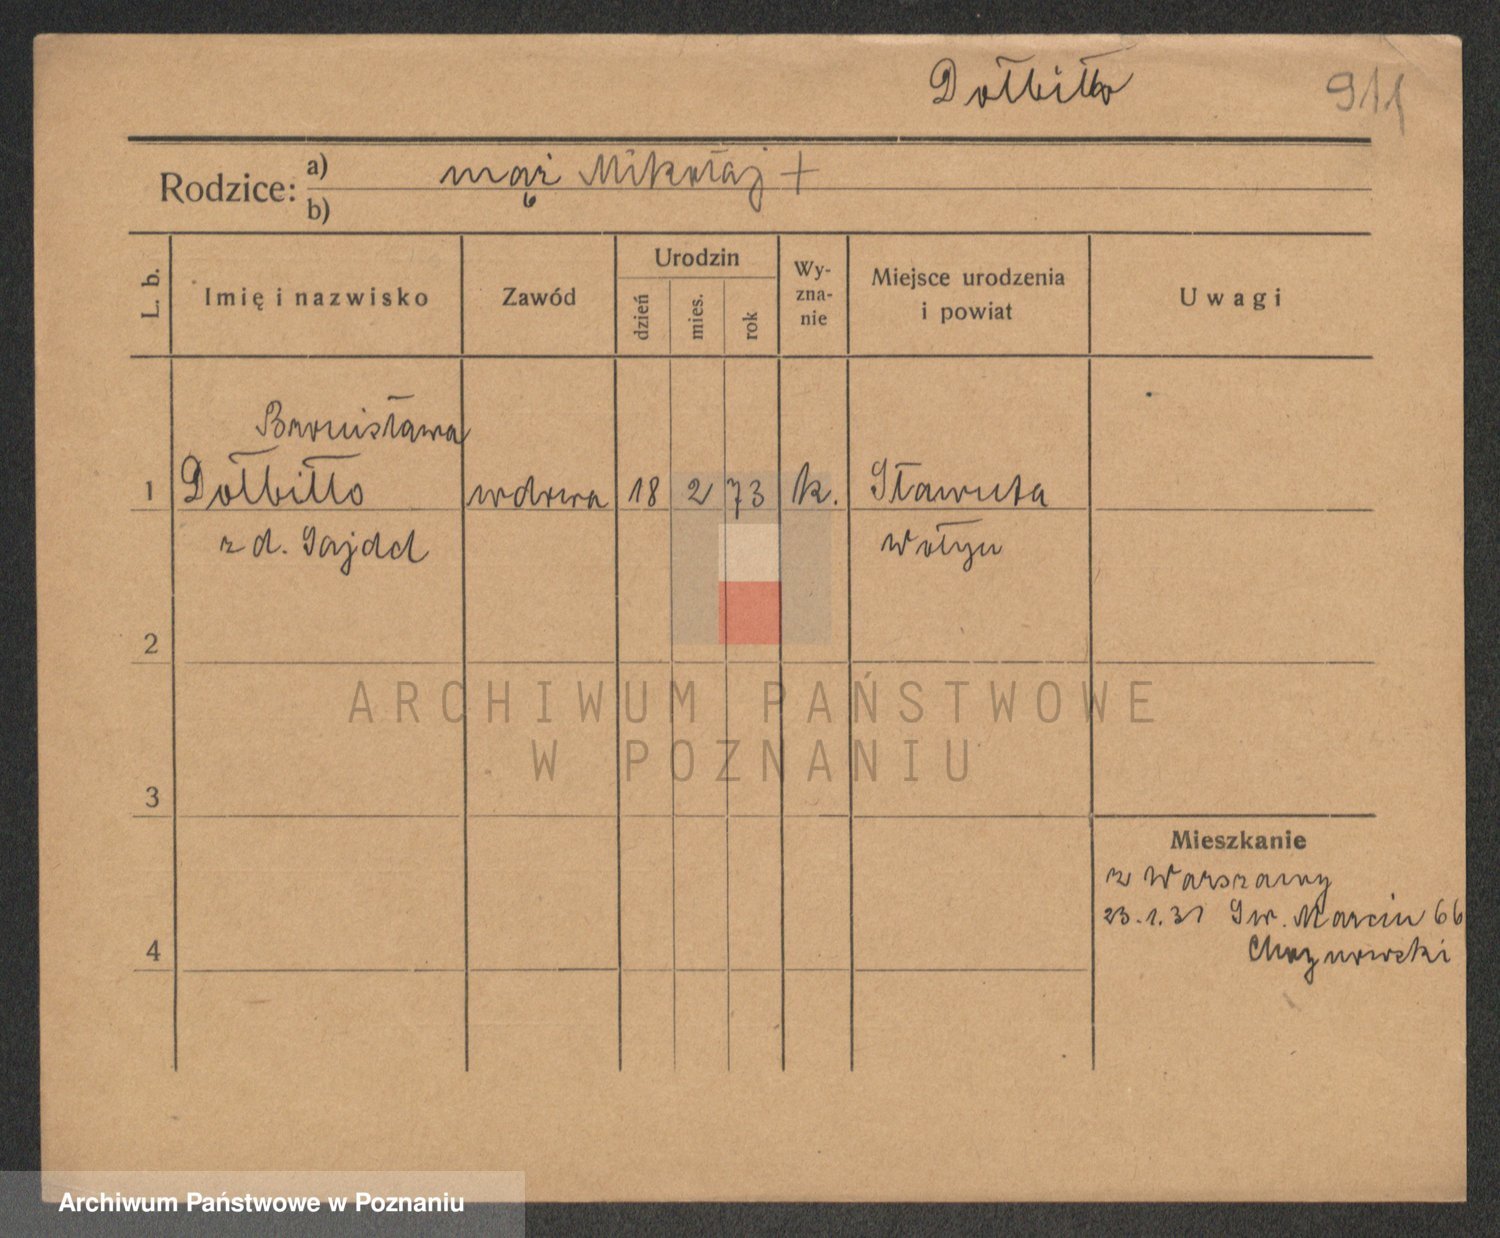 Dołbiłło
911
Rodzice: a) mąż Mikołaj +
b)
L. b.
Imię i nazwisko
Zawód
Urodzin
dzień
mies.
rok
Wy-
zna-
nie
Miejsce urodzenia
i powiat
Uwagi
Bronisława
1 Dołbiłło wdowa 18 2 73 k. Sławuta
z d. Wołyń
2
ARCHIWUM PAŃSTWOWE
W POZNANIU
3
Mieszkanie
z Warszawy
23.1.31 Św. Marcin 66
4
Archiwum Państwowe w Poznaniu